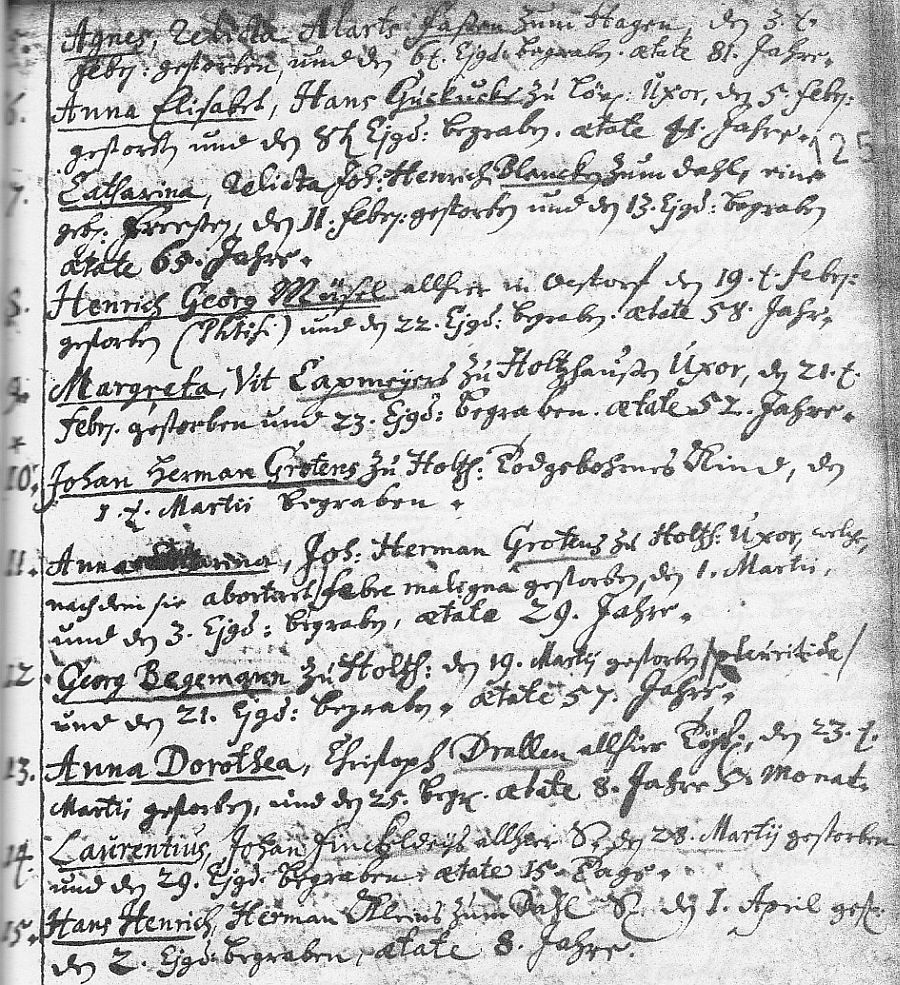 5. Agnes, Relicta Alarts Fasten zum Hagen, den 3.t.
Febr: gestorben, und den 6t. Ejqd: begraben. ætate 81. Jahre.
6. Anna Elisabet, Hans Guckucks zu Uxor, den 5. Febr:
gestorben und den 8t Ejqd: begraben. ætate Jahre.
125
7. Catharina, Relicta Joh: Henrich Blancken zum Dahl, eine
geb: den 11. Febr: gestorben und den 13. Ejqd: begraben
ætate 65. Jahre.
8. Henrich Georg Müsel allhier in Oestorf den 19.t. Febr:
gestorben (Phtisi) und den 22. Ejqd: begraben. ætate 58. Jahr.
9. Margreta, Vit Capmeyers zu Holtzhausen Uxor, den 21.t.
Febr. gestorben und 23. Ejqd: begraben. ætate 52. Jahre.
+
10. Johan Herman Grotens zu Holtzh: Todgebohrnes Kind, den
1.t. Martii begraben.
11. Anna Joh: Herman Grotens zu Holtzh: Uxor, welche,
nachdem sie abortiert /febre maligna gestorben, den 1. Martii,
und den 3. Ejqd: begraben, ætate 29. Jahre.
12. Georg Begemann zu Holtzh: den 19. Martij gestorben /pleuritide/
und den 21. Ejqd: begraben. ætate 57. Jahre.
13. Anna Dorothea, Christoph Drallen allhier Töcht:, den 23.t.
Martij gestorben, und den 25. begr. ætate 8. Jahre 5. Monat.
14. Laurentius, Johan allhier S. den 28. Martij gestorben
und den 29. Ejqd: begraben ætate 15. Tage.
15. Hans Henrich, Herman Kleins zum Dahl S. den 1. April gest:
den 2. Ejqd: begraben, ætate 8. Jahre.